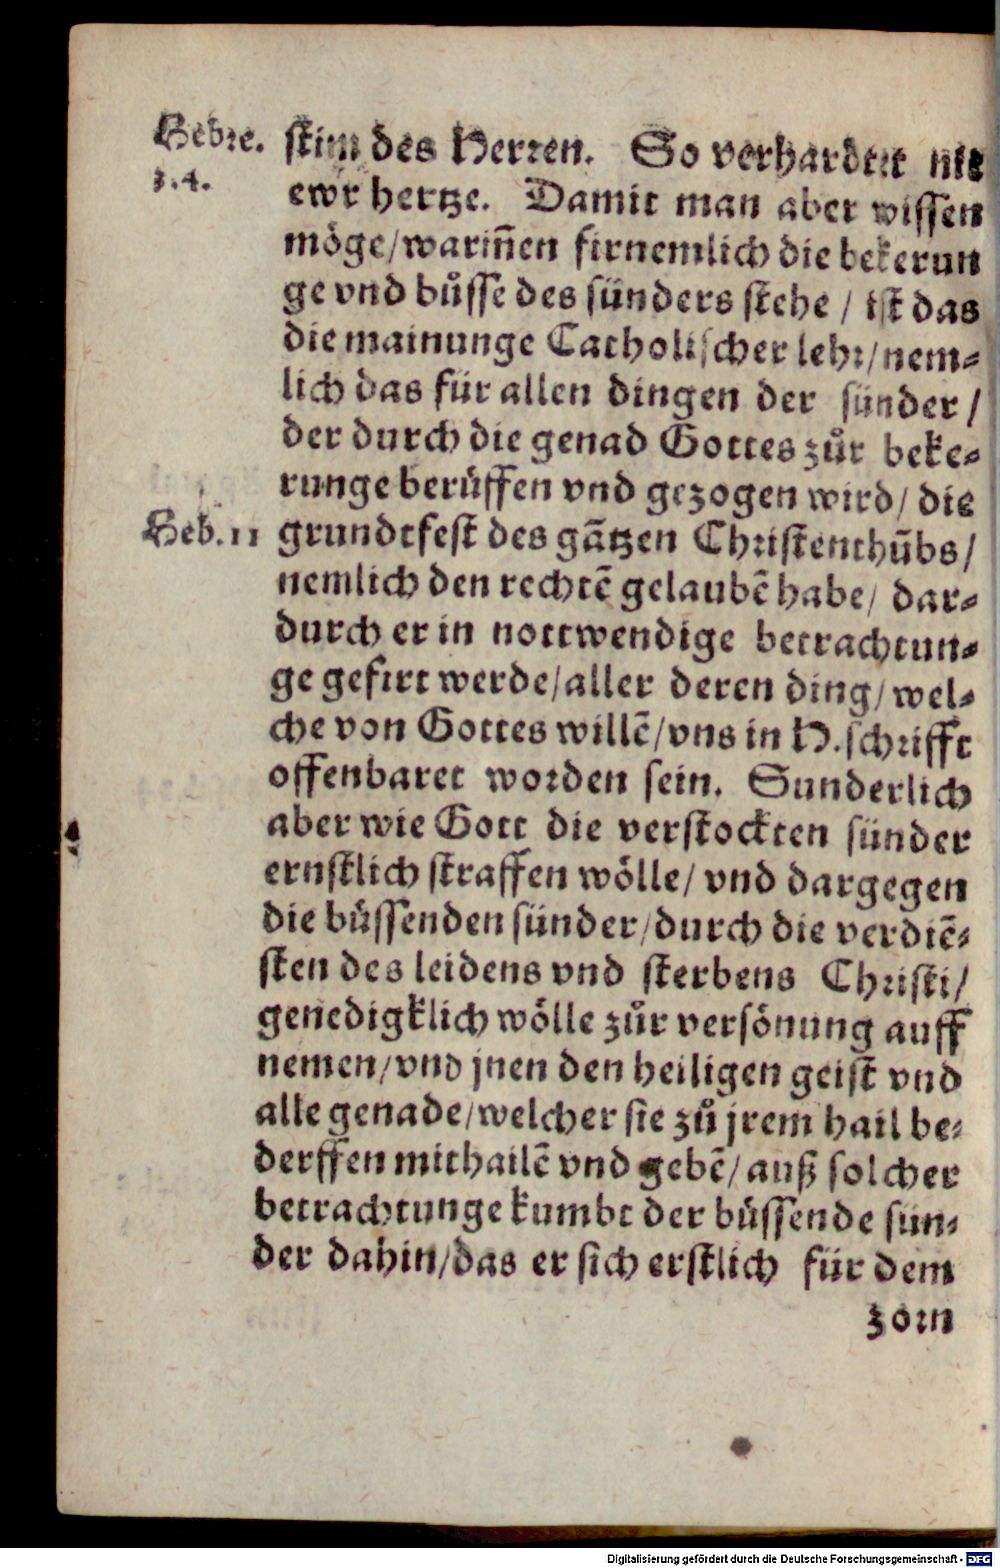 Hebre.
3.4.
stim des Herren. So verhardtet nit
ewr hertze. Damit man aber wissen
möge/warin̄en firnemlich die bekerun
ge vnd bůsse des sünders stehe / ist das
die mainunge Catholischer lehr/nem-
lich das für allen dingen der sünder /
der durch die genad Gottes zůr beke-
runge berůffen vnd gezogen wird/ die
Heb.11
grundtfest des gãtzen Christenthũbs/
nemlich den rechtẽ gelaubẽ habe/ dar-
durch er in nottwendige betrachtun-
ge gefirt werde/aller deren ding/wel-
che von Gottes willẽ/vns in H.schrifft
offenbaret worden sein. Sunderlich
aber wie Gott die verstockten sünder
ernstlich straffen wölle/ vnd dargegen
die büssenden sünder/durch die verdiẽ-
sten des leidens vnd sterbens Christi/
genedigklich wölle zůr versönung auff
nemen/vnd jnen den heiligen geist vnd
alle genade/welcher sie zů jrem hail be-
derffen mithailẽ vnd gebẽ/ auß solcher
betrachtunge kumbt der büssende sün-
der dahin/das er sich erstlich für dem
zorn
Digitalisierung gefördert durch die Deutsche Forschungsgemeinschaft - DFG